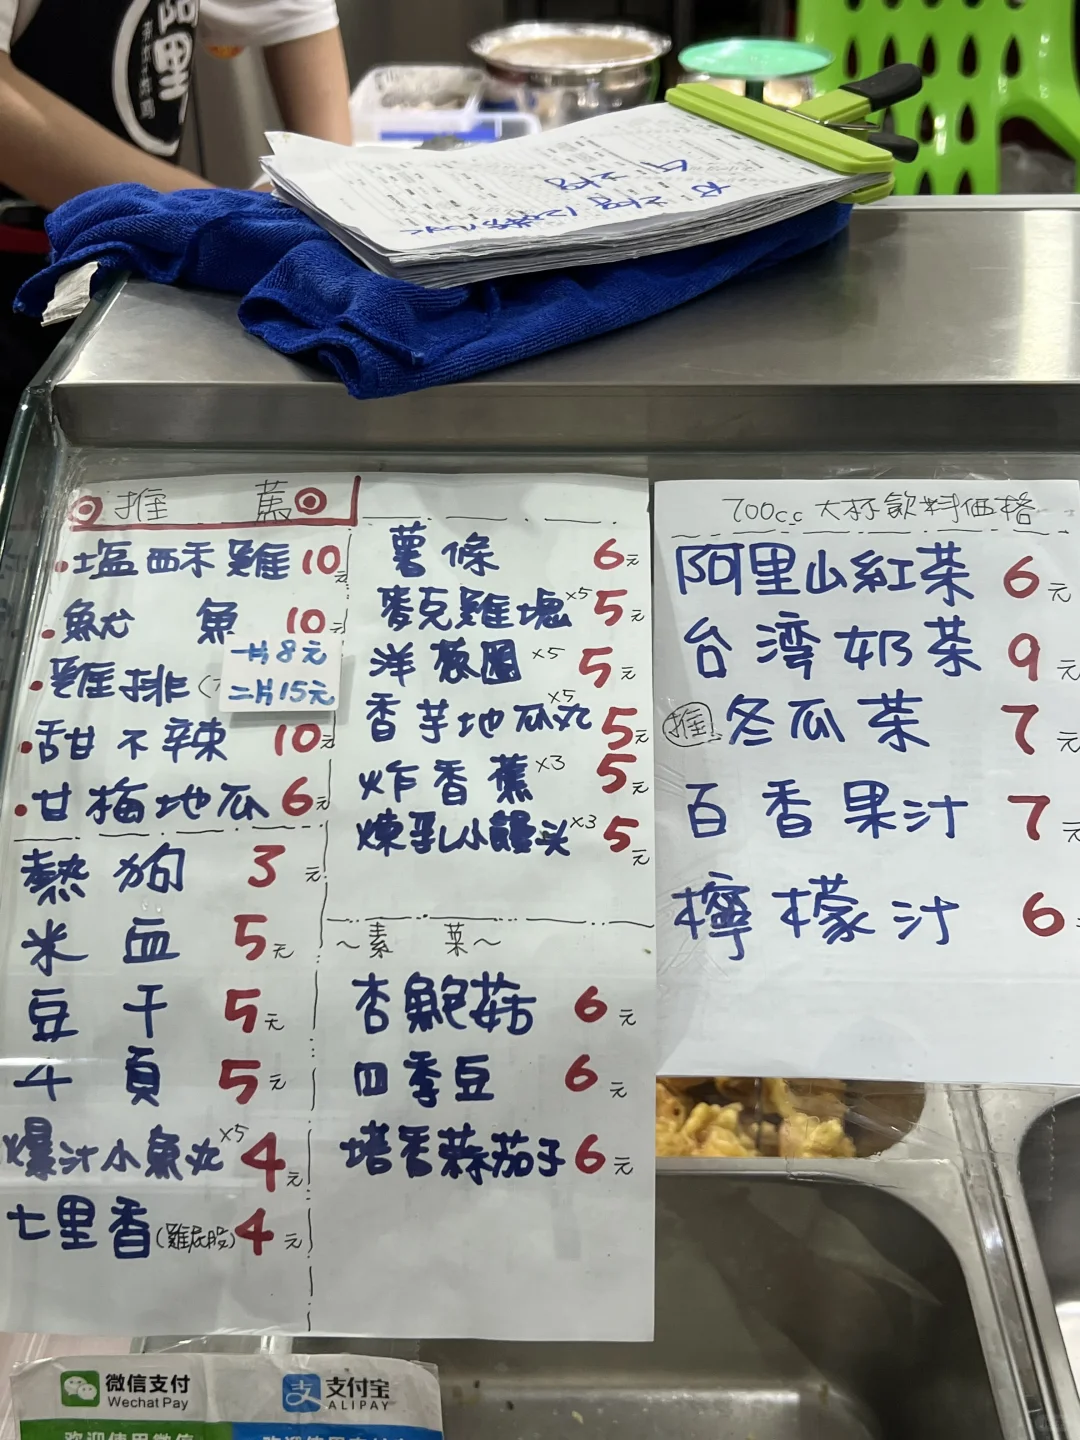 ◎推 薦◎
·塩酥雞 10元
·魷 魚 10元
·雞排
一片8元
二片15元
·甜不辣 10元
·甘梅地瓜 6元
熱狗 3元
米血 5元
豆干 5元
千頁 5元
爆汁小魚丸x5 4元
七里香(雞屁股) 4元
薯條 6元
麥克雞塊x5 5元
洋蔥圈x5 5元
香芋地瓜丸x5 5元
炸香蕉x3 5元
煉乳小饅头x3 5元
~素 菜~
杏鮑菇 6元
四季豆 6元
塔香蒜茄子 6元
700cc 大杯飲料価格
阿里山紅茶 6元
台湾奶茶 9元
推 冬瓜茶 7元
百香果汁 7元
檸檬汁 6元
微信支付
WechatPay
支付宝
ALIPAY